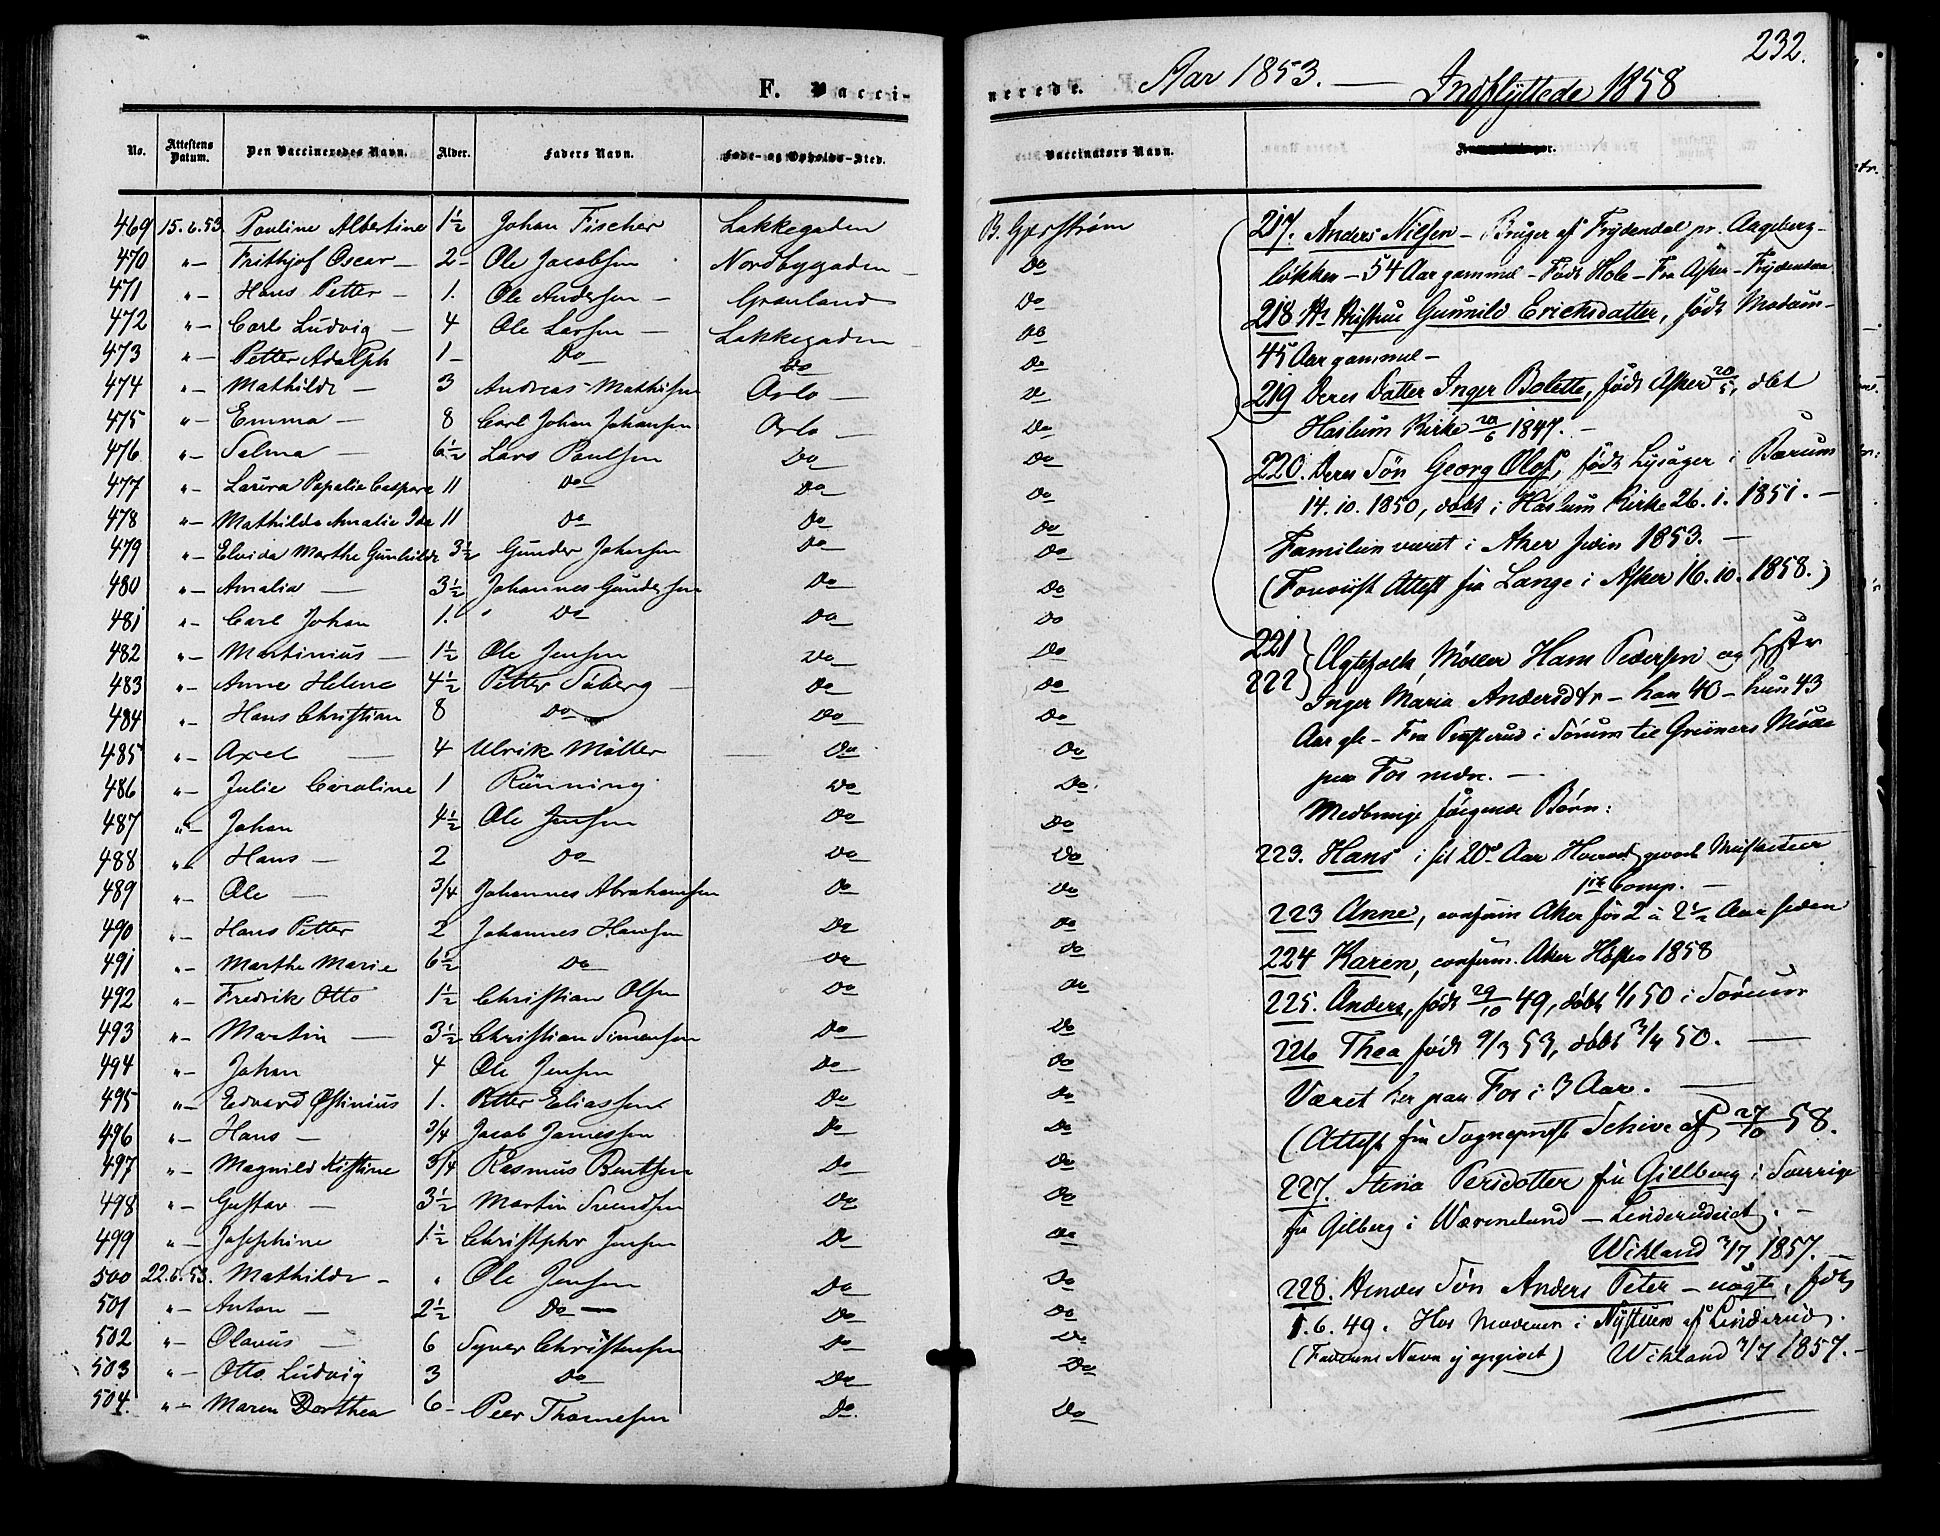 232.
F. Vacci-
nerede. Aar 1853. — Indflyttede 1858
No. Attestens Datum. Den Vaccineredes Navn. Alder. Faders Navn. Føde- og Opholds-Sted.
Vaccinators Navn. Anmærkninger.
469 15.6.53. Pauline Albertine 1½ Johan Fischer Lakkegaden B. Gjerstrøm
470 "– Frithjof Oscar – 2– Ole Jacobsen Nordbygaden – Do
471 "– Hans Petter – 1. Ole Andersen – Grønland Do
472 "– Carl Ludvig – 4 Ole Larsen – Lakkegaden – Do
473 "– Petter Adolph 1– Do Do Do
474 "– Mathilde – 3 Andreas Mathisen Oslo – Do
475 "– Emma – 8 Carl Johan Johansen Oslo – Do
476 "– Selma – 6½ Lars Paulsen Do Do
477 "– Laura 11 Do Do Do
478 "– Mathilde Amalie Ida 11 Do Do Do
479 "– Elvida Marthe Gunhilde 3½ Gunder Johnsen Do Do
480 "– Amalia – 3½ Johannes Gundersen Do Do
481 "– Carl Johan 1. Do Do Do
482 "– Martinius – 1½ Ole Jensen Do Do
483 "– Anne Helene 4½ Petter Søberg – Do Do
484 "– Hans Christian 8 Do Do Do
485 "– Axel – 4 Ulrik Møller – Do Do
486 "– Julie Caroline 1 Rünning Do Do.
487 "– Johan 4½ Ole Jensen Do Do
488 "– Hans – 2 Do Do Do
489 "– Ole – 3/4 Johannes Abrahamsen Do Do
490 "– Hans Petter 2 Johannes Hansen Do Do
491 "– Marthe Marie 6½ Do Do Do
492 "– Fredrik Otto 1½ Christian Olsen Do Do
493 "– Martin – 3½ Christian Simensen Do Do
494 "– Johan 4 Ole Jensen Do Do
495 "– Edvard Østinius 1. Petter Eliassen Do Do
496 "– Hans – 3/4 Jacob Jamessen Do Do
497 "– Magnild Kistine 3/4 Rasmus Bentsen Do Do
498 "– Gustav – 3½ Martin Svendsen Do Do
499 "– Josephine 1½ Christopher Jensen Do Do
500 22.6.53. Mathilde – " Ole Jensen Do Do
501 "– Anton – 2½ Do — Do Do
502 "– Olavus – 6 Syver Christensen Do Do
503 "– Otto Ludvig 3 Do Do Do
504. "– Maren Dorthea 6– Peer Thomesen Do. Do
217. Anders Nilsen – Bruger af Frydendal pr. Aageberg-
løkken – 54 Aar gammel – Født Hole – Fra Asker – Frydendal
218 Hs Hustru Gunnild Erichsdatter, født Modum –
45 Aar gammel –
219 Deres Datter Inger Bolette, født Asker 20/5, døbt
Haslum Kirke 20/6 1847. –
220. Deres Søn Georg Olof, født Lysager i Bærum
14.10.1850, døbt i Haslum Kirke 26.1.1851. –
Familien været i Aker siden 1853. –
(Foreviist Attest fra Lange i Asker 16.10.1858.)
221
222 } Ægtefolk Møller Hans Pedersen og Hstr
Inger Maria Andersdtr – han 40 – hun 43
Aar gle – Fra i Sørum til Grüners Mølle
paa Fos nedre. –
Medbringe følgende Børn:
223. Hans i sit 20de Aar Musketeer
Comp. –
223 Anne, confirm Aker for 2 à 2½ Aar siden
224 Karen, confirm. Aker Høsten 1858
225. Anders, født 29/10 49, døbt 1/1 50 i Sørum
226 Thea født 9/3 53, døbt 3/4 50. —
Været her paa Fos i 3 Aar. —
(Attest fra Sognepræst Schive af 27/10 58.
227. Stina Persdotter fra Gillberg i Sverrige
fra Gilberg i Wærmeland – Linderudeiet. –
Wikland 3/7 1857. –
228. Hendes Søn Anders Peter – uægte, født
1.6.49. Hos Moderen i Nystuen af Linderud.
(Faderens Navn ej opgivet) Wikland 3/7 1857. –